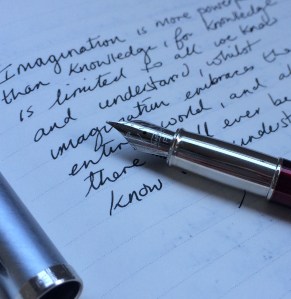 Imagination is more power
than knowledge, for knowledge
is limited to all we know
and understand, whilst
imagination embraces the
entire world, and all
there ll ever be
know understa